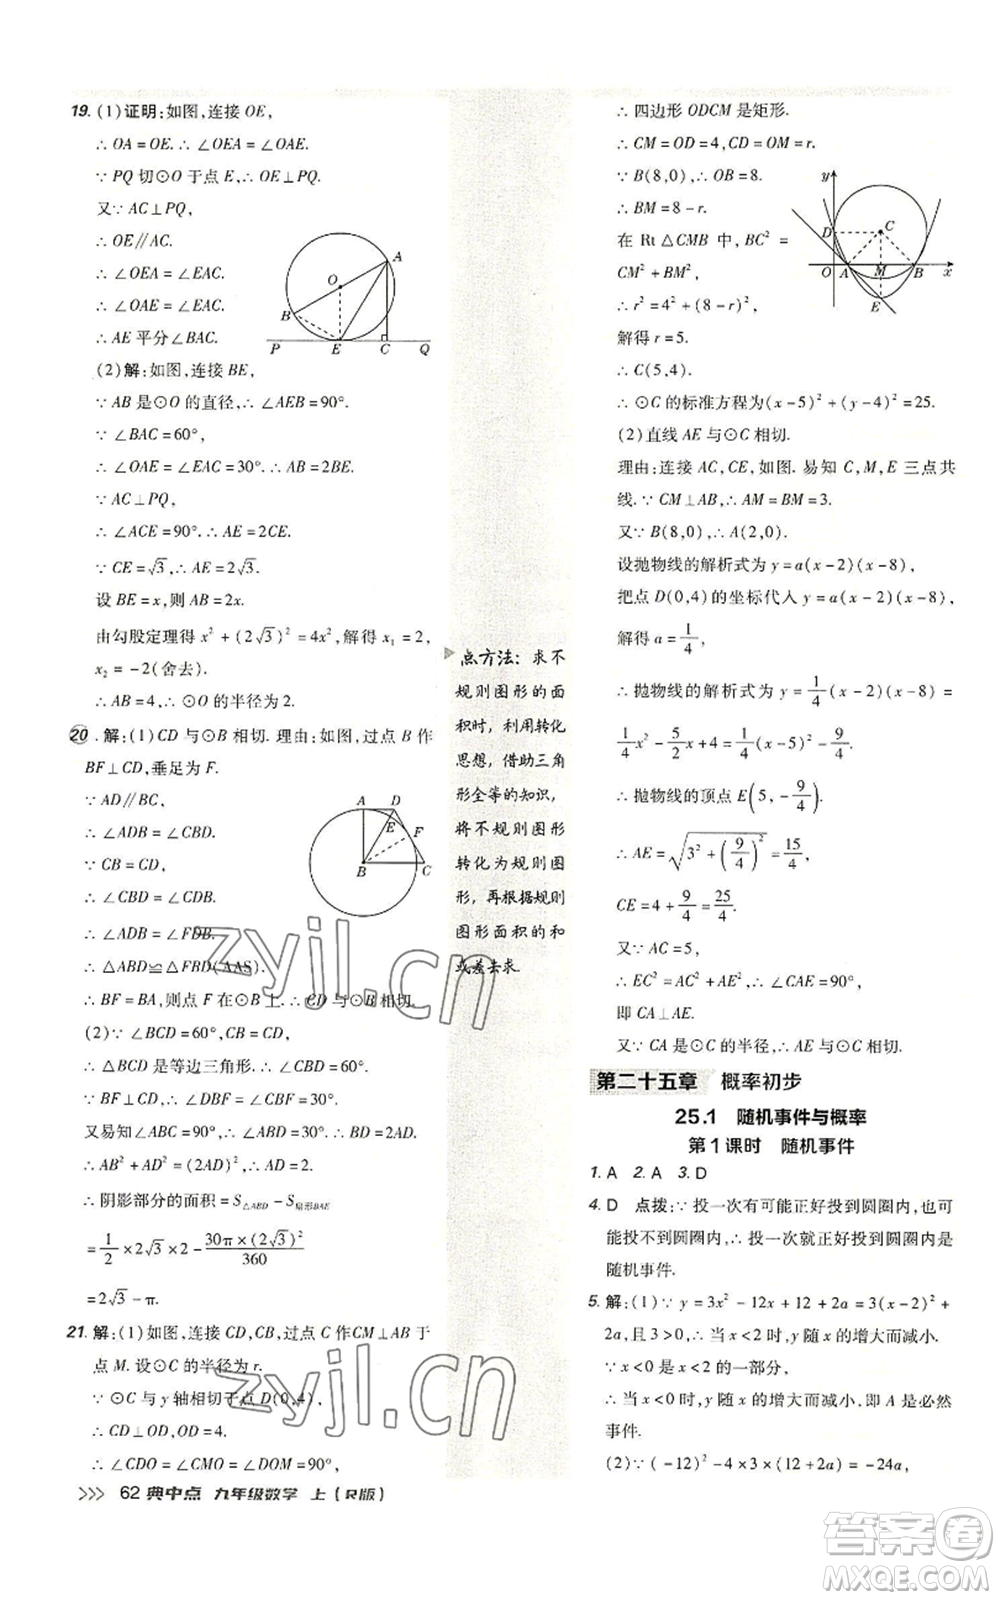 19. (1)证明:如图,连接 OE,
∴ OA=OE. ∴ ∠OEA=∠OAE.
∵ PQ 切⊙O 于点 E,∴ OE⊥PQ.
又∵ AC⊥PQ,
∴ OE∥AC.
∴ ∠OEA=∠EAC.
∴ ∠OAE=∠EAC.
∴ AE 平分∠BAC.
A
O
B
P E C Q
(2)解:如图,连接 BE,
∵ AB 是⊙O 的直径,∴ ∠AEB=90°.
∵ ∠BAC=60°,
∴ ∠OAE=∠EAC=30°. ∴ AB=2BE.
∵ AC⊥PQ,
∴ ∠ACE=90°. ∴ AE=2CE.
∵ CE=√3,∴ AE=2√3.
设 BE=x,则 AB=2x.
由勾股定理得 x²+(2√3)²=4x²,解得 x₁=2,
x₂=-2(舍去).
∴ AB=4,∴ ⊙O 的半径为 2.
20. 解:(1)CD 与⊙B 相切. 理由:如图,过点 B 作
BF⊥CD,垂足为 F.
∵ AD∥BC,
∴ ∠ADB=∠CBD.
∵ CB=CD,
∴ ∠CBD=∠CDB.
∴ ∠ADB=∠FDB.
∴ △ABD≌△FBD(AAS).
A D
E F
B C
∴ BF=BA,则点 F 在⊙B 上. ∴ CD 与⊙B 相切.
(2)∵ ∠BCD=60°,CB=CD,
∴ △BCD 是等边三角形. ∴ ∠CBD=60°.
∴ ∠ABD=30°.
又易知 AB=2√3,∴ BD=2AD.
∴ AB²+AD²=(2AD)². ∴ AD=2.
∴ 阴影部分的面积=S△ABD-S扇形BAE
=1/2×2√3×2-30π×(2√3)²/360
=2√3-π.
21. 解:(1)如图,连接 CD,CB,过点 C 作CM⊥AB 于
点 M. 设⊙C 的半径为 r.
∵ ⊙C 与 y 轴相切于点 D(0,4),
∴ CD⊥OD,OD=4.
∴ ∠CDO=∠CMO=∠DOM=90°,
>>> 62 典中点 九年级数学 上(R版)
点方法:求不
规则图形的面
积时,利用转化
思想,借助三角
形全等的知识,
将不规则图形
转化为规则图
形,再根据规则
图形面积的和
或差去求.
∴ 四边形 ODCM 是矩形.
∴ CM=OD=4,CD=OM=r.
∵ B(8,0),∴ OB=8.
∴ BM=8-r.
在 Rt △CMB 中,BC²=
CM²+BM²,
∴ r²=4²+(8-r)²,
解得 r=5.
∴ C(5,4).
y
D C
O A M B x
E
∴ ⊙C 的标准方程为(x-5)²+(y-4)²=25.
(2)直线 AE 与⊙C 相切.
理由:连接 AC,CE,如图. 易知 C,M,E 三点共
线. ∵ CM⊥AB,∴ AM=BM=3.
又∵ B(8,0),∴ A(2,0).
设抛物线的解析式为 y=a(x-2)(x-8),
把点 D(0,4)的坐标代人 y=a(x-2)(x-8),
解得 a=1/4,
∴ 抛物线的解析式为 y=1/4(x-2)(x-8)=
1/4x²-5/2x+4=1/4(x-5)²-9/4.
∴ 抛物线的顶点 E(5,-9/4).
∴ AE=√(3²+(9/4)²)=15/4,
CE=4+9/4=25/4.
又∵ AC=5,
∴ EC²=AC²+AE²,∴ ∠CAE=90°,
即 CA⊥AE.
又∵ CA 是⊙C 的半径,∴ AE 与⊙C 相切.
第二十五章 概率初步
25.1 随机事件与概率
第 1 课时 随机事件
1. A 2. A 3. D
4. D 点拨:∵ 投一次有可能正好投到圆圈内,也可
能投不到圆圈内,∴ 投一次正好投到圆圈内是
随机事件.
5. 解:(1)∵ y=3x²-12x+12+2a=3(x-2)²+
2a,∴ 当 x<2 时,y 随 x 的增大而减小.
∵ x<0 是 x<2 的一部分,
∴ 当 x<0 时,y 随 x 的增大而减小,即 A 是必然
事件.
(2)∵ (-12)²-4×3×(12+2a)=-24a,
zyjl.cn
zyjl.cn
答案圈
MXQE.COM